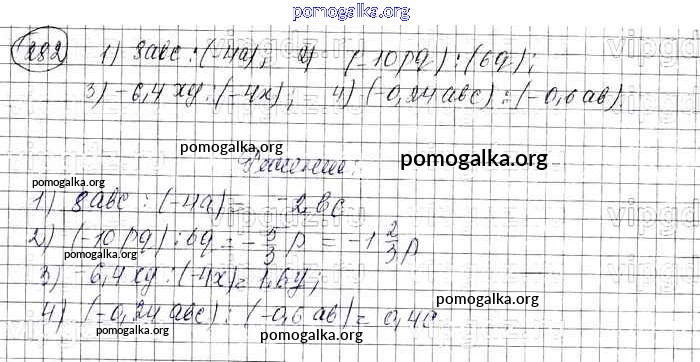 pomogalka.org
282 1) 8abc : (-4a); 2) (-10pq) : (6q);
3) -6,4xy : (-4x); 4) (-0,24abc) : (-0,6ab).
pomogalka.org
pomogalka.org
Решение:
pomogalka.org
1) 8abc : (-4a) = -2bc
2) (-10pq) : 6q = -5/3 p = -1 2/3 p
3) -6,4xy : (-4x) = 1,6y;
pomogalka.org
4) (-0,24abc) : (-0,6ab) = 0,4c
pomogalka.org
pomogalka.org